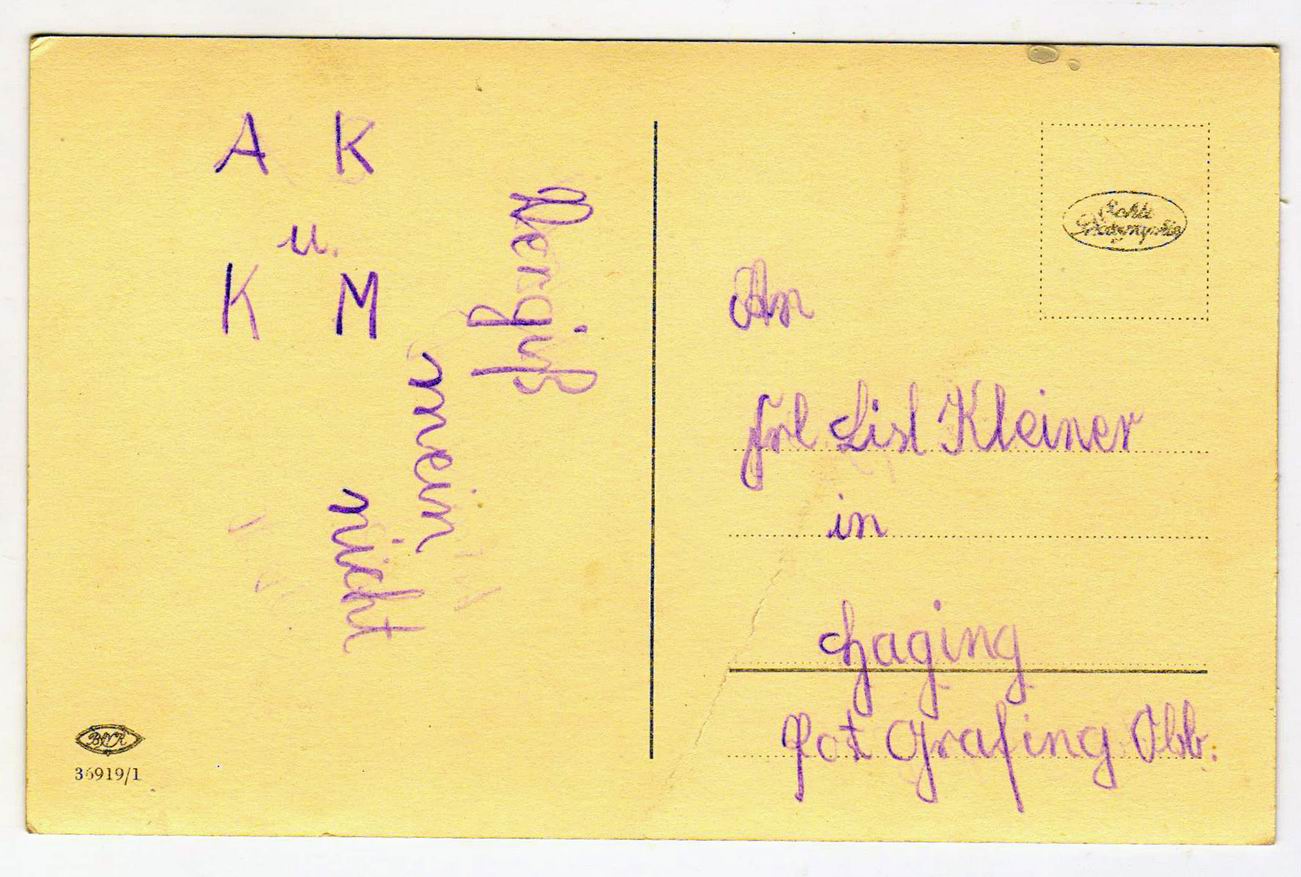 A K
u.
K M
Vergiß
mein
nicht
An
Frl Lisl Kleiner
in
Haging
Pot Grafing Obb.
Echte
Photographie
36919/1